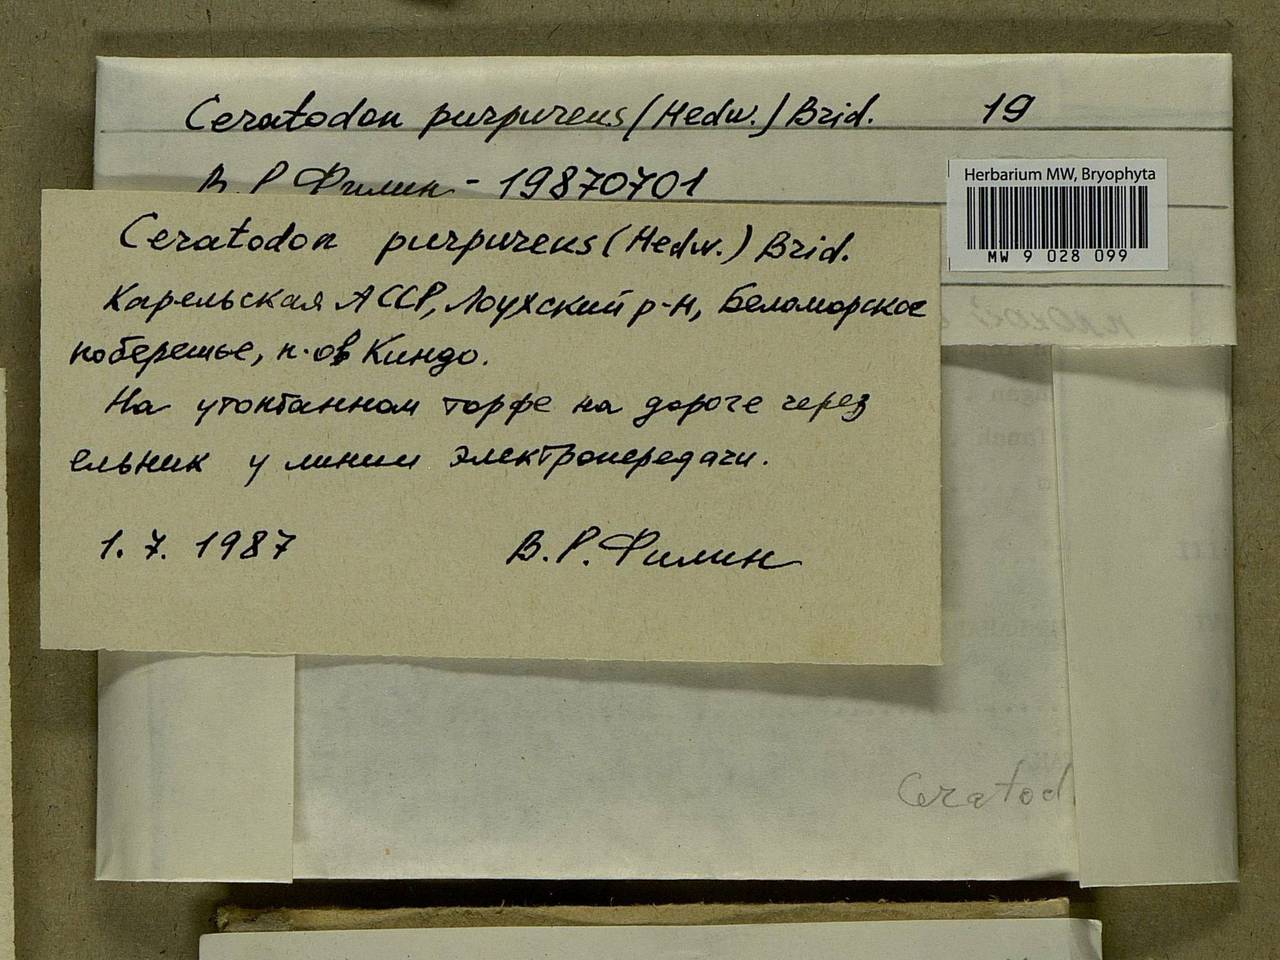 Ceratodon purpureus (Hedw.) Brid. 19
В. Р. Филин - 19870701
Herbarium MW, Bryophyta
MW 9 028 099
Ceratodon purpureus (Hedw.) Brid.
Карельская АССР, Лоухский р-н, Беломорское
побережье, п-ов Киндо.
На утоптанном торфе на дороге через
ельник у линии электропередачи.
1. 7. 1987 В. Р. Филин
Ceratod